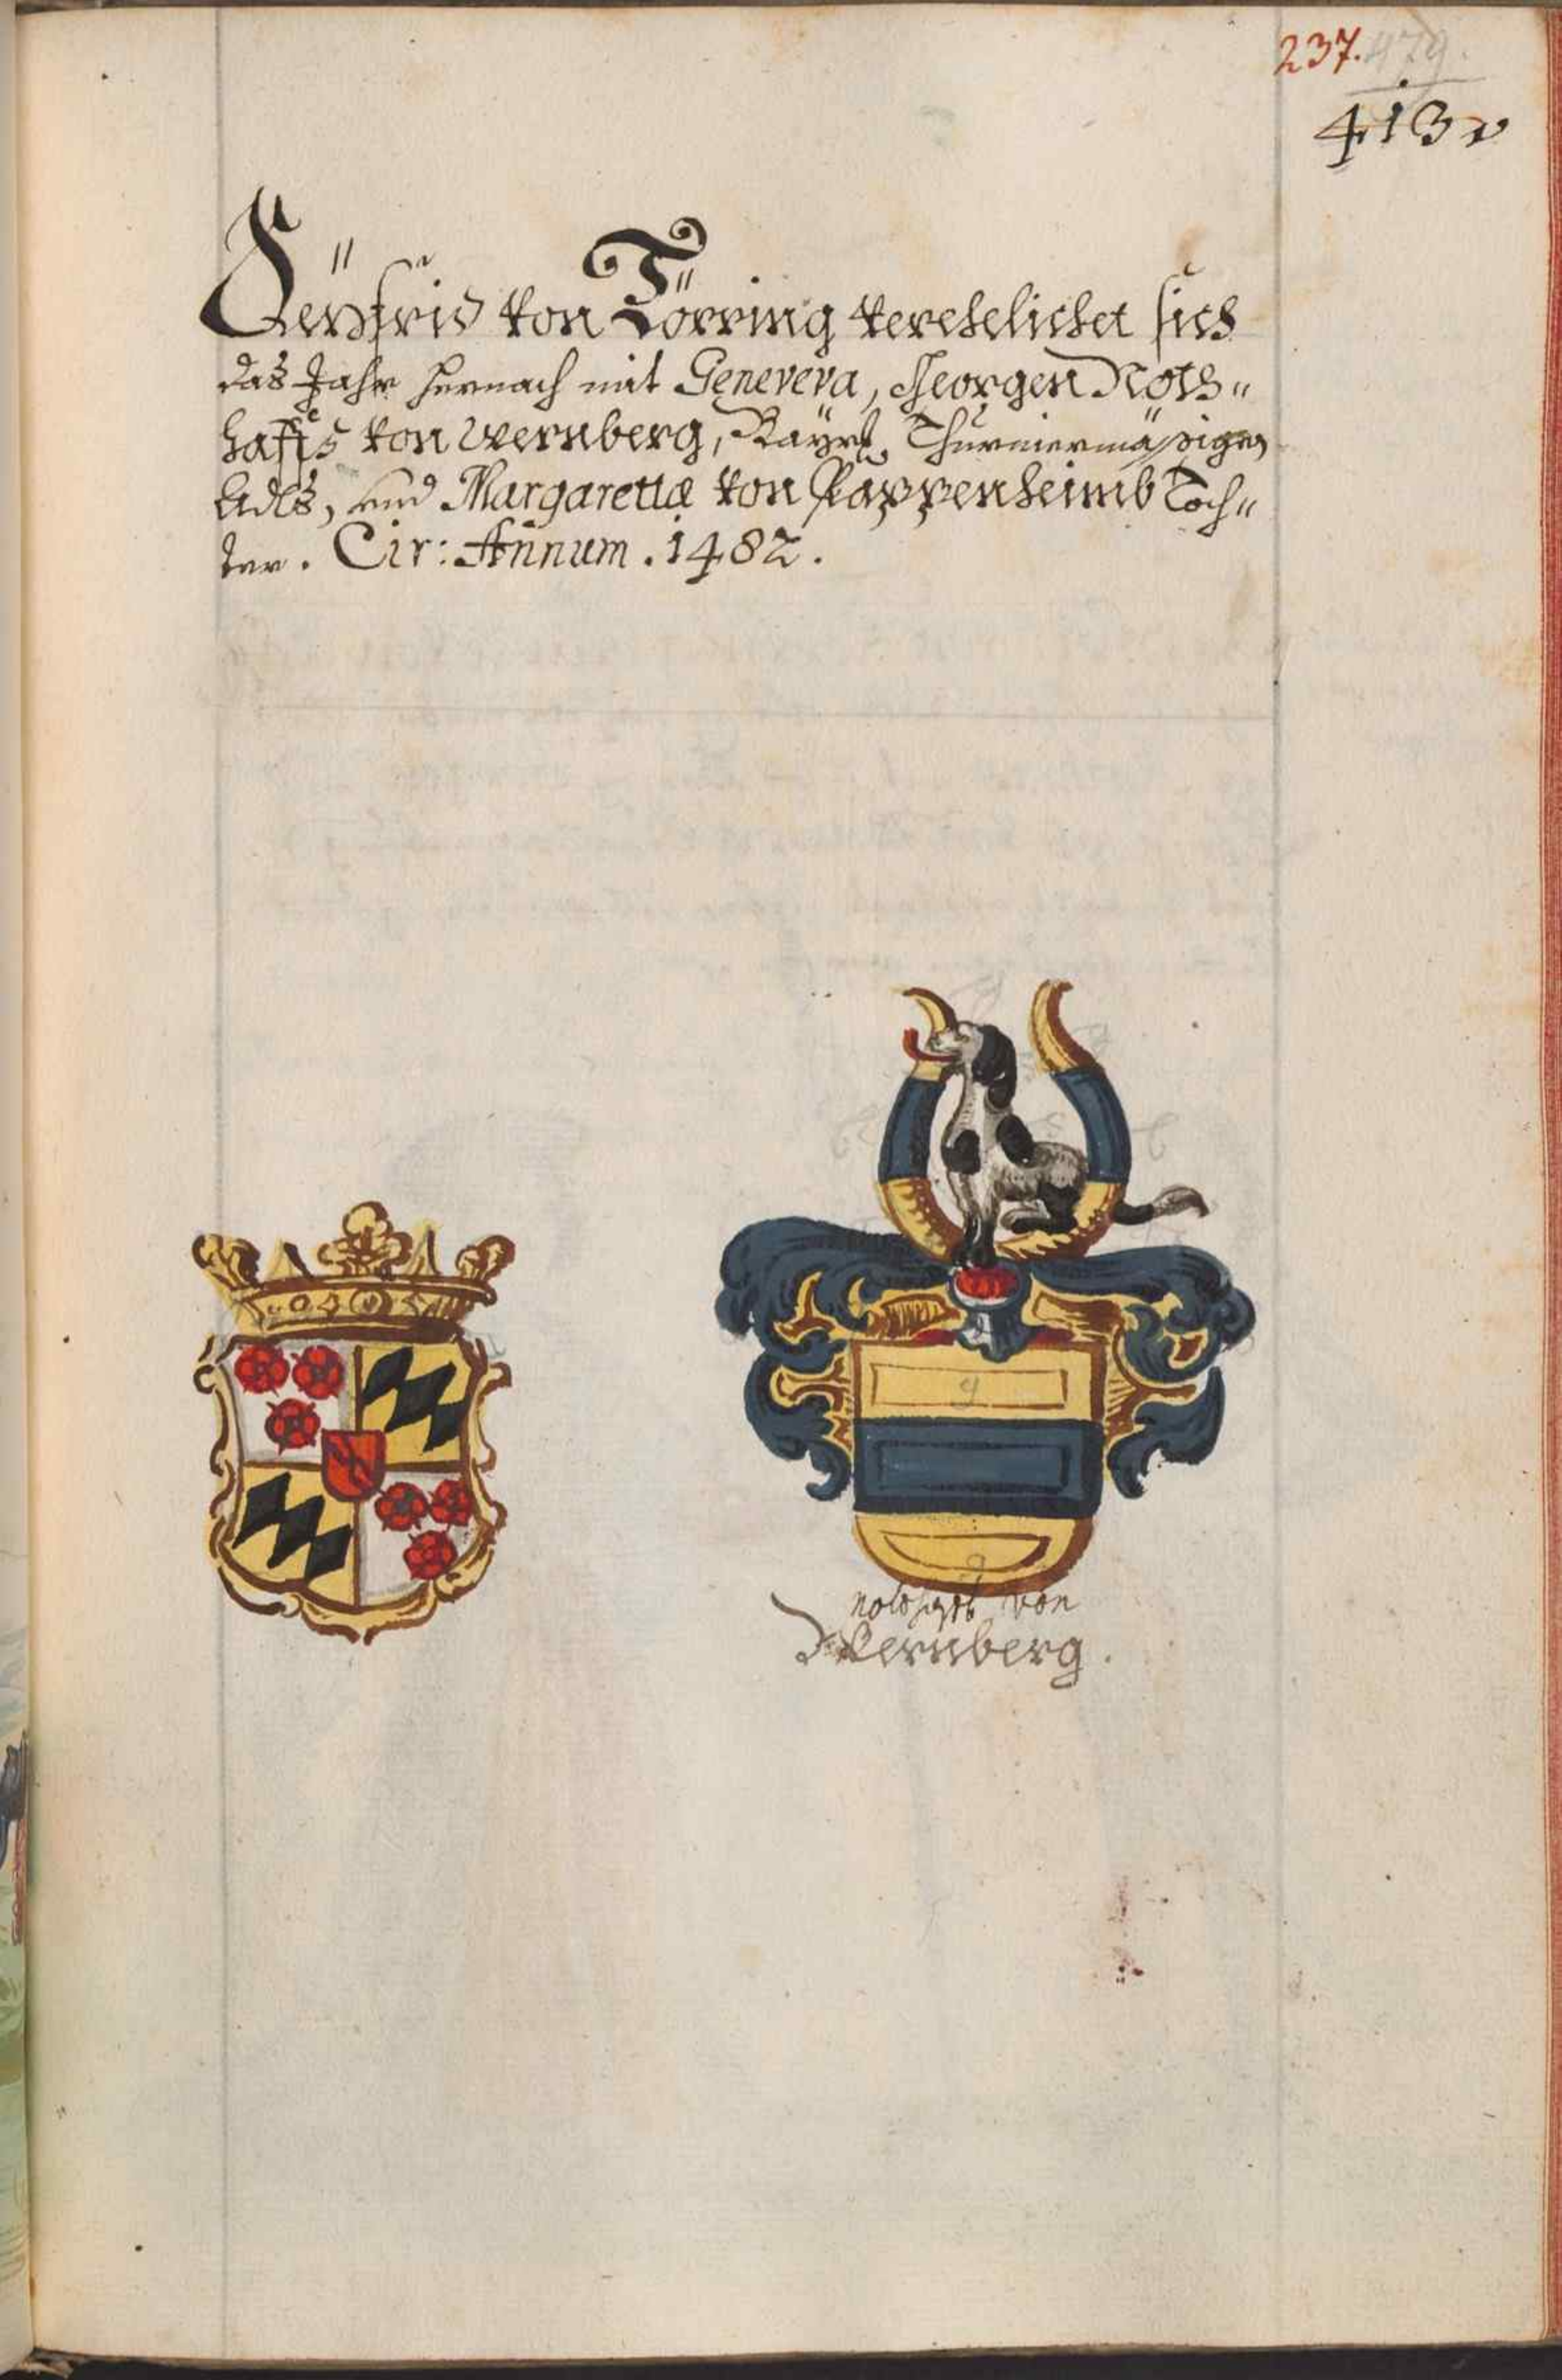 237. 479.
413 v
Seÿfrid von Törring verehelichet sich
das Jahr hernach mit Geneveva, Georgen Noth„
haffts von Wernberg, Bayrl. Thurniermäßigen
Adls, und Margarettæ von Pappenheimb Toch„
ter. Cir: Annum. 1482.
g
g
nothhafft von
Wernberg.